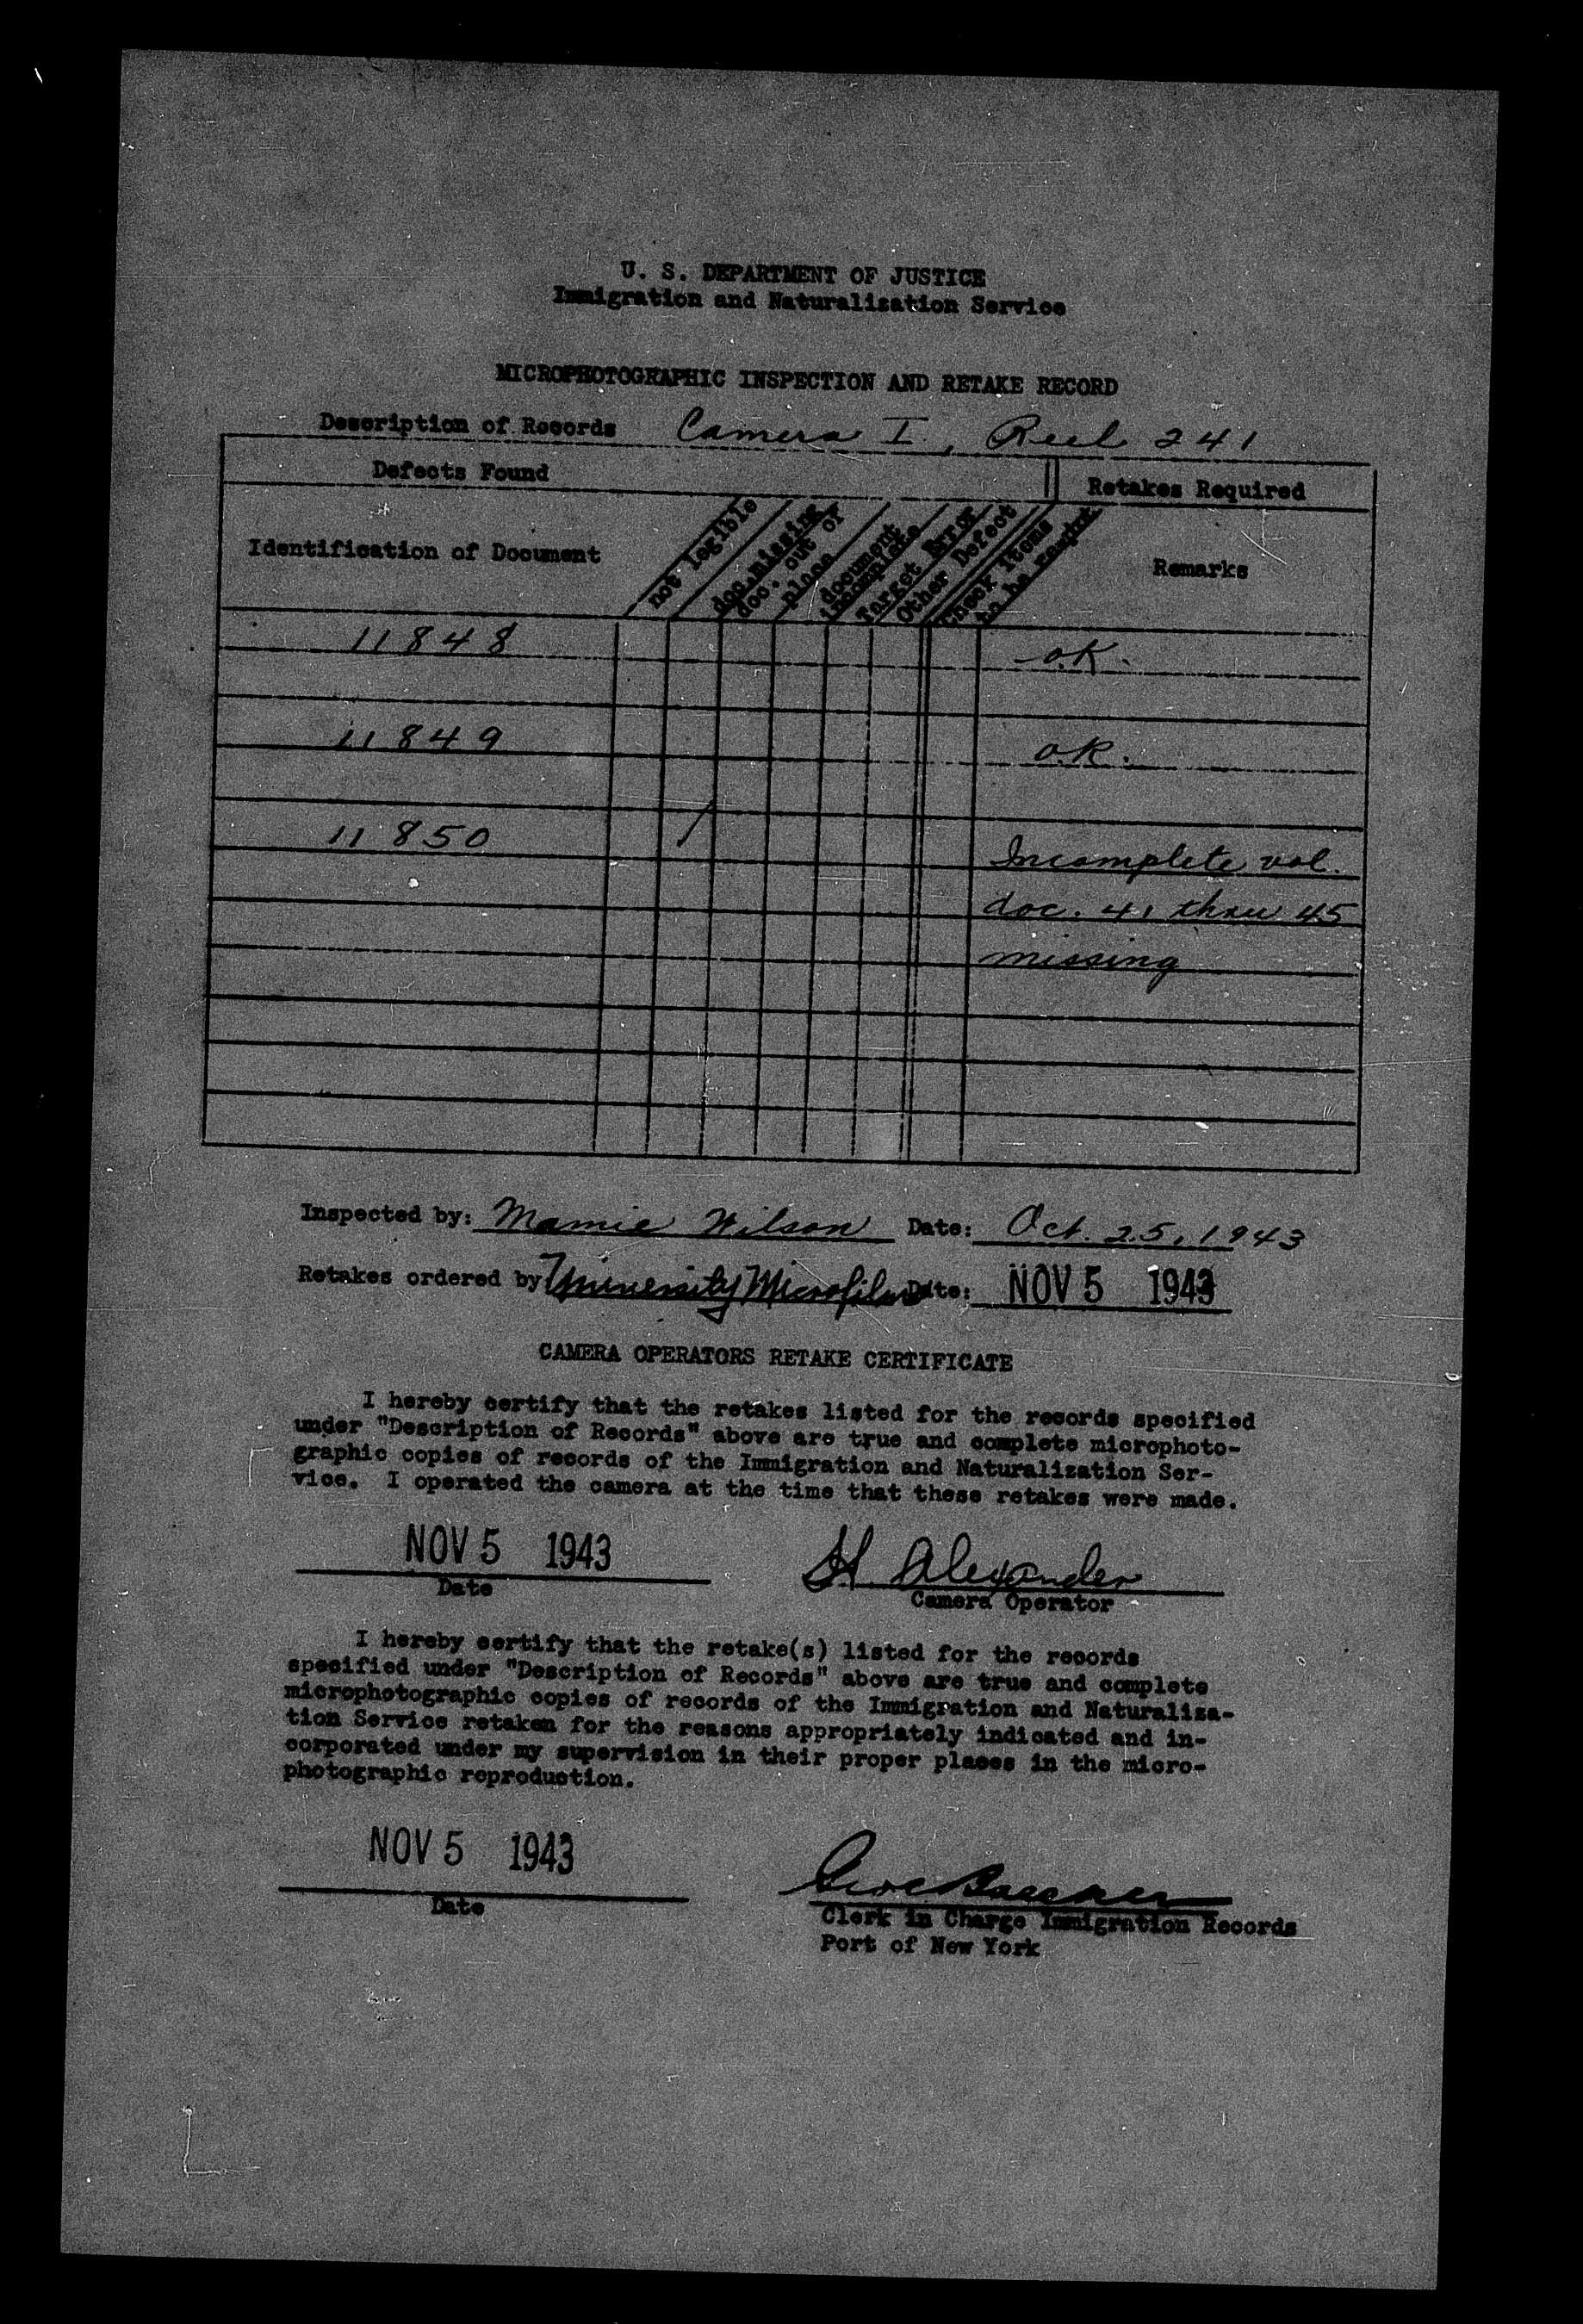 U. S. DEPARTMENT OF JUSTICE
Immigration and Naturalization Service
MICROPHOTOGRAPHIC INSPECTION AND RETAKE RECORD
Description of Records Camera I, Reel 241
Defects Found
Retakes Required
Identification of Document
not legible
doc. missing
doc. out of
place
document
incomplete
Target Error
Other Defect
Check items
to be
Remarks
11848 O.K.
11849 O.K.
11850 / Incomplete vol.
doc. 41 thru 45
missing
Inspected by: Mamie Wilson Date: Oct. 25, 1943
Retakes ordered by University Microfilms Date: NOV 5 1943
CAMERA OPERATORS RETAKE CERTIFICATE
I hereby certify that the retakes listed for the records specified
under "Description of Records" above are true and complete microphoto-
graphic copies of records of the Immigration and Naturalization Ser-
vice. I operated the camera at the time that these retakes were made.
NOV 5 1943
Date
H. Alexander
Camera Operator
I hereby certify that the retake(s) listed for the records
specified under "Description of Records" above are true and complete
microphotographic copies of records of the Immigration and Naturaliza-
tion Service retaken for the reasons appropriately indicated and in-
corporated under my supervision in their proper places in the micro-
photographic reproduction.
NOV 5 1943
Date
Clerk in Charge Immigration Records
Port of New York